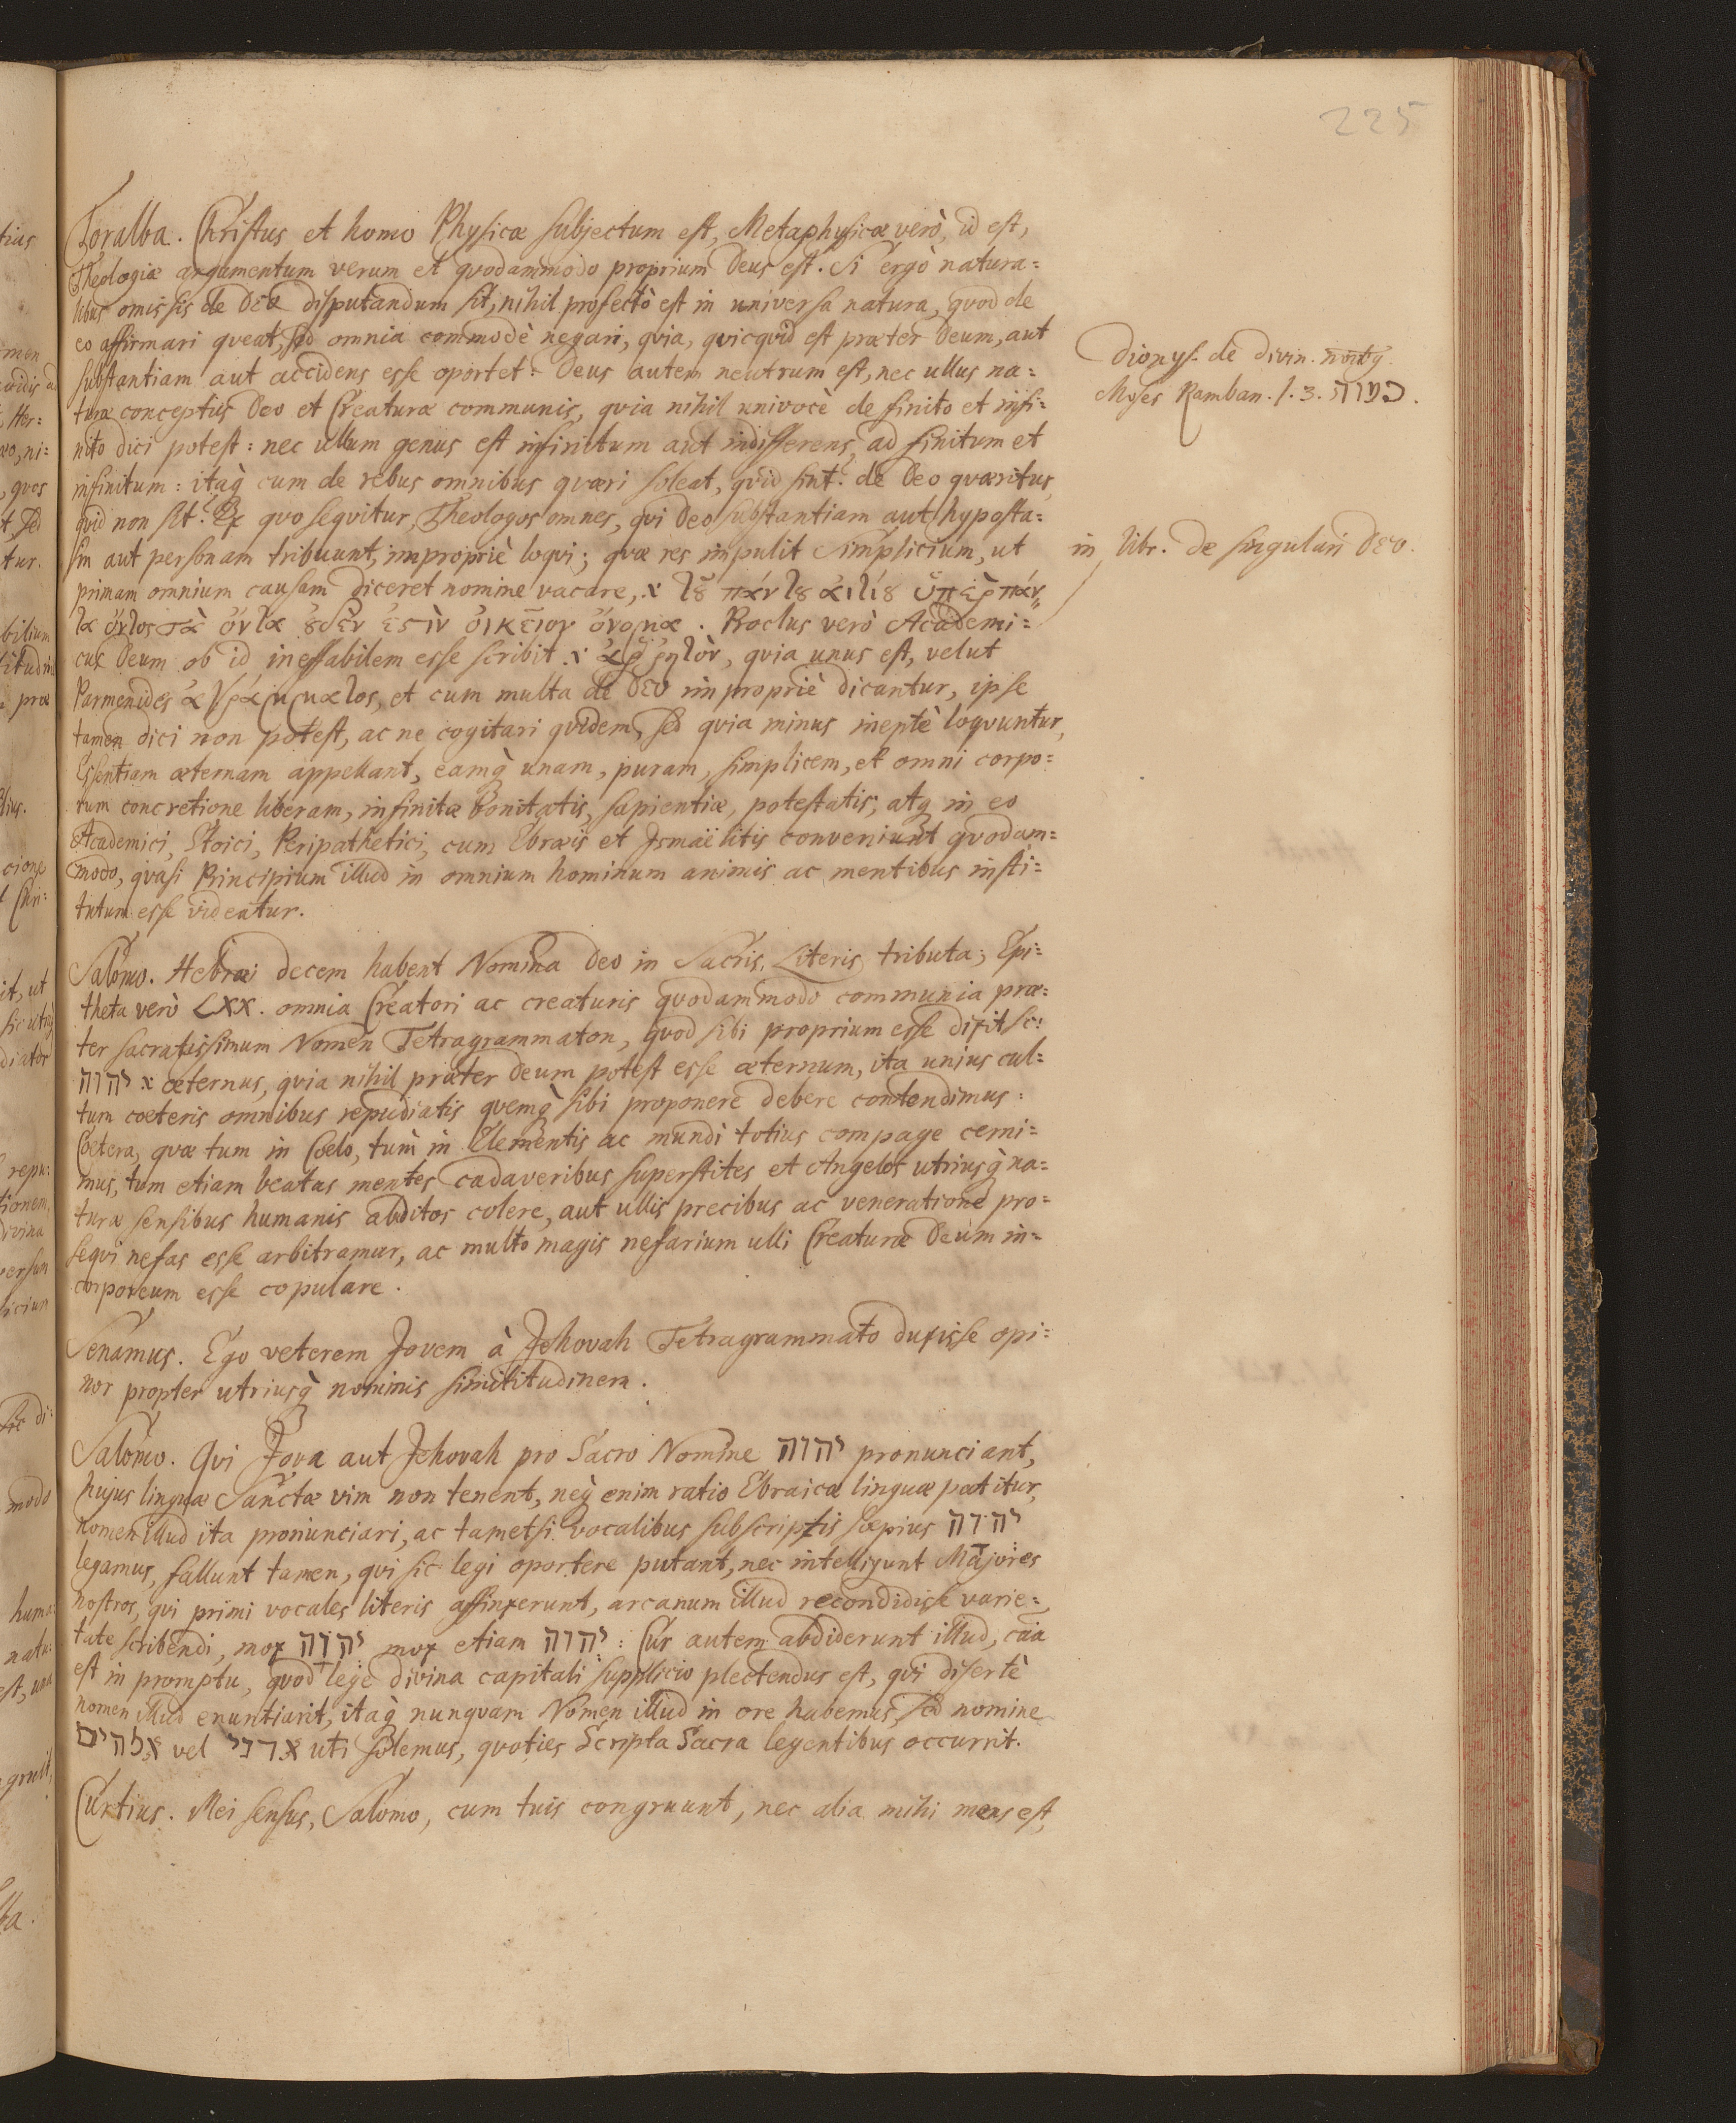 225
Toralba. Christus et homo Physicæ subjectum est, Metaphysicæ verò, id est,
Theologiæ argumentum verum et quodammodo proprium Deus est. Si ergò natura=
libus omissis de Deo disputandum sit, nihil profectò est in universa natura, quod de
eo affirmari queat, sed omnia commodè negari, quia, quicquid est præter Deum, aut
substantiam aut accidens esse oportet: Deus autem neutrum est, nec ullus na=
turæ conceptus Deo et Creaturæ communis, quia nihil univocè de finito et infi=
nito dici potest: nec ullum genus est infinitum aut indifferens, ad finitum et
infinitum: itaq̀ cum de rebus omnibus quæri soleat, quid sint? de Deo quæritur,
quid non sit? Ex quo sequitur, Theologos omnes, qui Deo substantiam aut hyposta=
sin aut personam tribuunt, impropriè loqui; quæ res impulit Simplicium, ut
primam omnium causam diceret nomine vacare, τȣ̃ πάντȣ ἀιτίȣ ὑπὲρ πάν=
τα ὄντος τὰ ὄντα ȣ̓δὲν ἐςὶν ὀικεῖον ὄνομα. Proclus verò Academi=
cus Deum ob id ineffabilem esse scribit ἀῤῥητὸν, quia unus est, velut
Parmenides ἀγράμματος, et cum multa de Deo impropriè dicantur, ipse
tamen dici non potest, ac ne cogitari quidem, sed quia minus ineptè loquuntur,
Essentiam æternam appellant, eamq̀ unam, puram, simplicem, et omni corpo=
rum concretione liberam, infinitæ bonitatis, sapientiæ, potestatis, atq̀ in eo
Academici, Stoici, Peripathetici, cum Ebræis et Ismaëlitis conveniunt quodam=
modo, quasi Principium illud in omnium hominum animis ac mentibus insti=
tutum esse videatur.
Salomo. Hebræi decem habent Nomina Deo in Sacris Literis tributa; Epi=
theta verò LXX. omnia Creatori ac creaturis quodammodo communia præ=
ter sacratissimum Nomen Tetragrammaton, quod sibi proprium esse dixit sc:
יהוה æternus, quia nihil præter Deum potest esse æternum, ita unius cul=
tum coeteris omnibus repudiatis quemq̀ sibi proponere debere contendimus:
Coetera, quæ tum in Coelo, tum in Elementis ac mundi totius compage cerni=
mus, tum etiam beatas mentes cadaveribus superstites et Angelos utriusq̀ na=
turæ sensibus humanis abditos colere, aut ullis precibus ac veneratione pro=
sequi nefas esse arbitramur, ac multo magis nefarium ulli Creaturæ Deum in=
corporeum esse copulare.
Senamus. Ego veterem Jovem à Jehovah Tetragrammato duxisse opi=
nor propter utriusq̀ nominis similitudinem.
Salomo. Qui Jova aut Jehovah pro Sacro Nomine יהוה pronunciant,
hujus linguæ Sanctæ vim non tenent, neq̀ enim ratio Ebraicæ linguæ patitur,
nomen illud ita pronunciari, ac tametsi vocalibus subscriptis sæpius יְהוָה
legamus, fallunt tamen, qui sic legi oportere putant, nec intelligunt Majores
nostros, qui primi vocales literis affinxerunt, arcanum illud recondidisse varie=
tate scribendi, mox יְהוָה mox etiam יהוה: Cur autem abdiderunt illud, caa̅
est in promptu, quod lege divina capitali supplicio plectendus est, qui disertè
nomen illud enuntiarit, itaq̀ nunquam Nomen illud in ore habemus, sed nomine
אלהים vel אדני uti solemus, quoties Scripta Sacra legentibus occurrit.
Curtius. Mei sensus, Salomo, cum tuis congruunt, nec alia mihi mens est,
Dionys. de divin.
Moses Ramban. l. 3.
in libr. de singulari Deo.